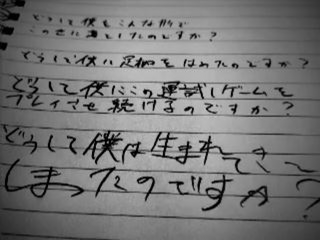 どうして僕をこんな形で
この世に落としたのですか？
どうして僕に足枷をはめたのですか？
どうして僕にこの運試しゲームを
プレイさせ続けるのですか？
どうして僕は生まれてきて
しまったのですか？